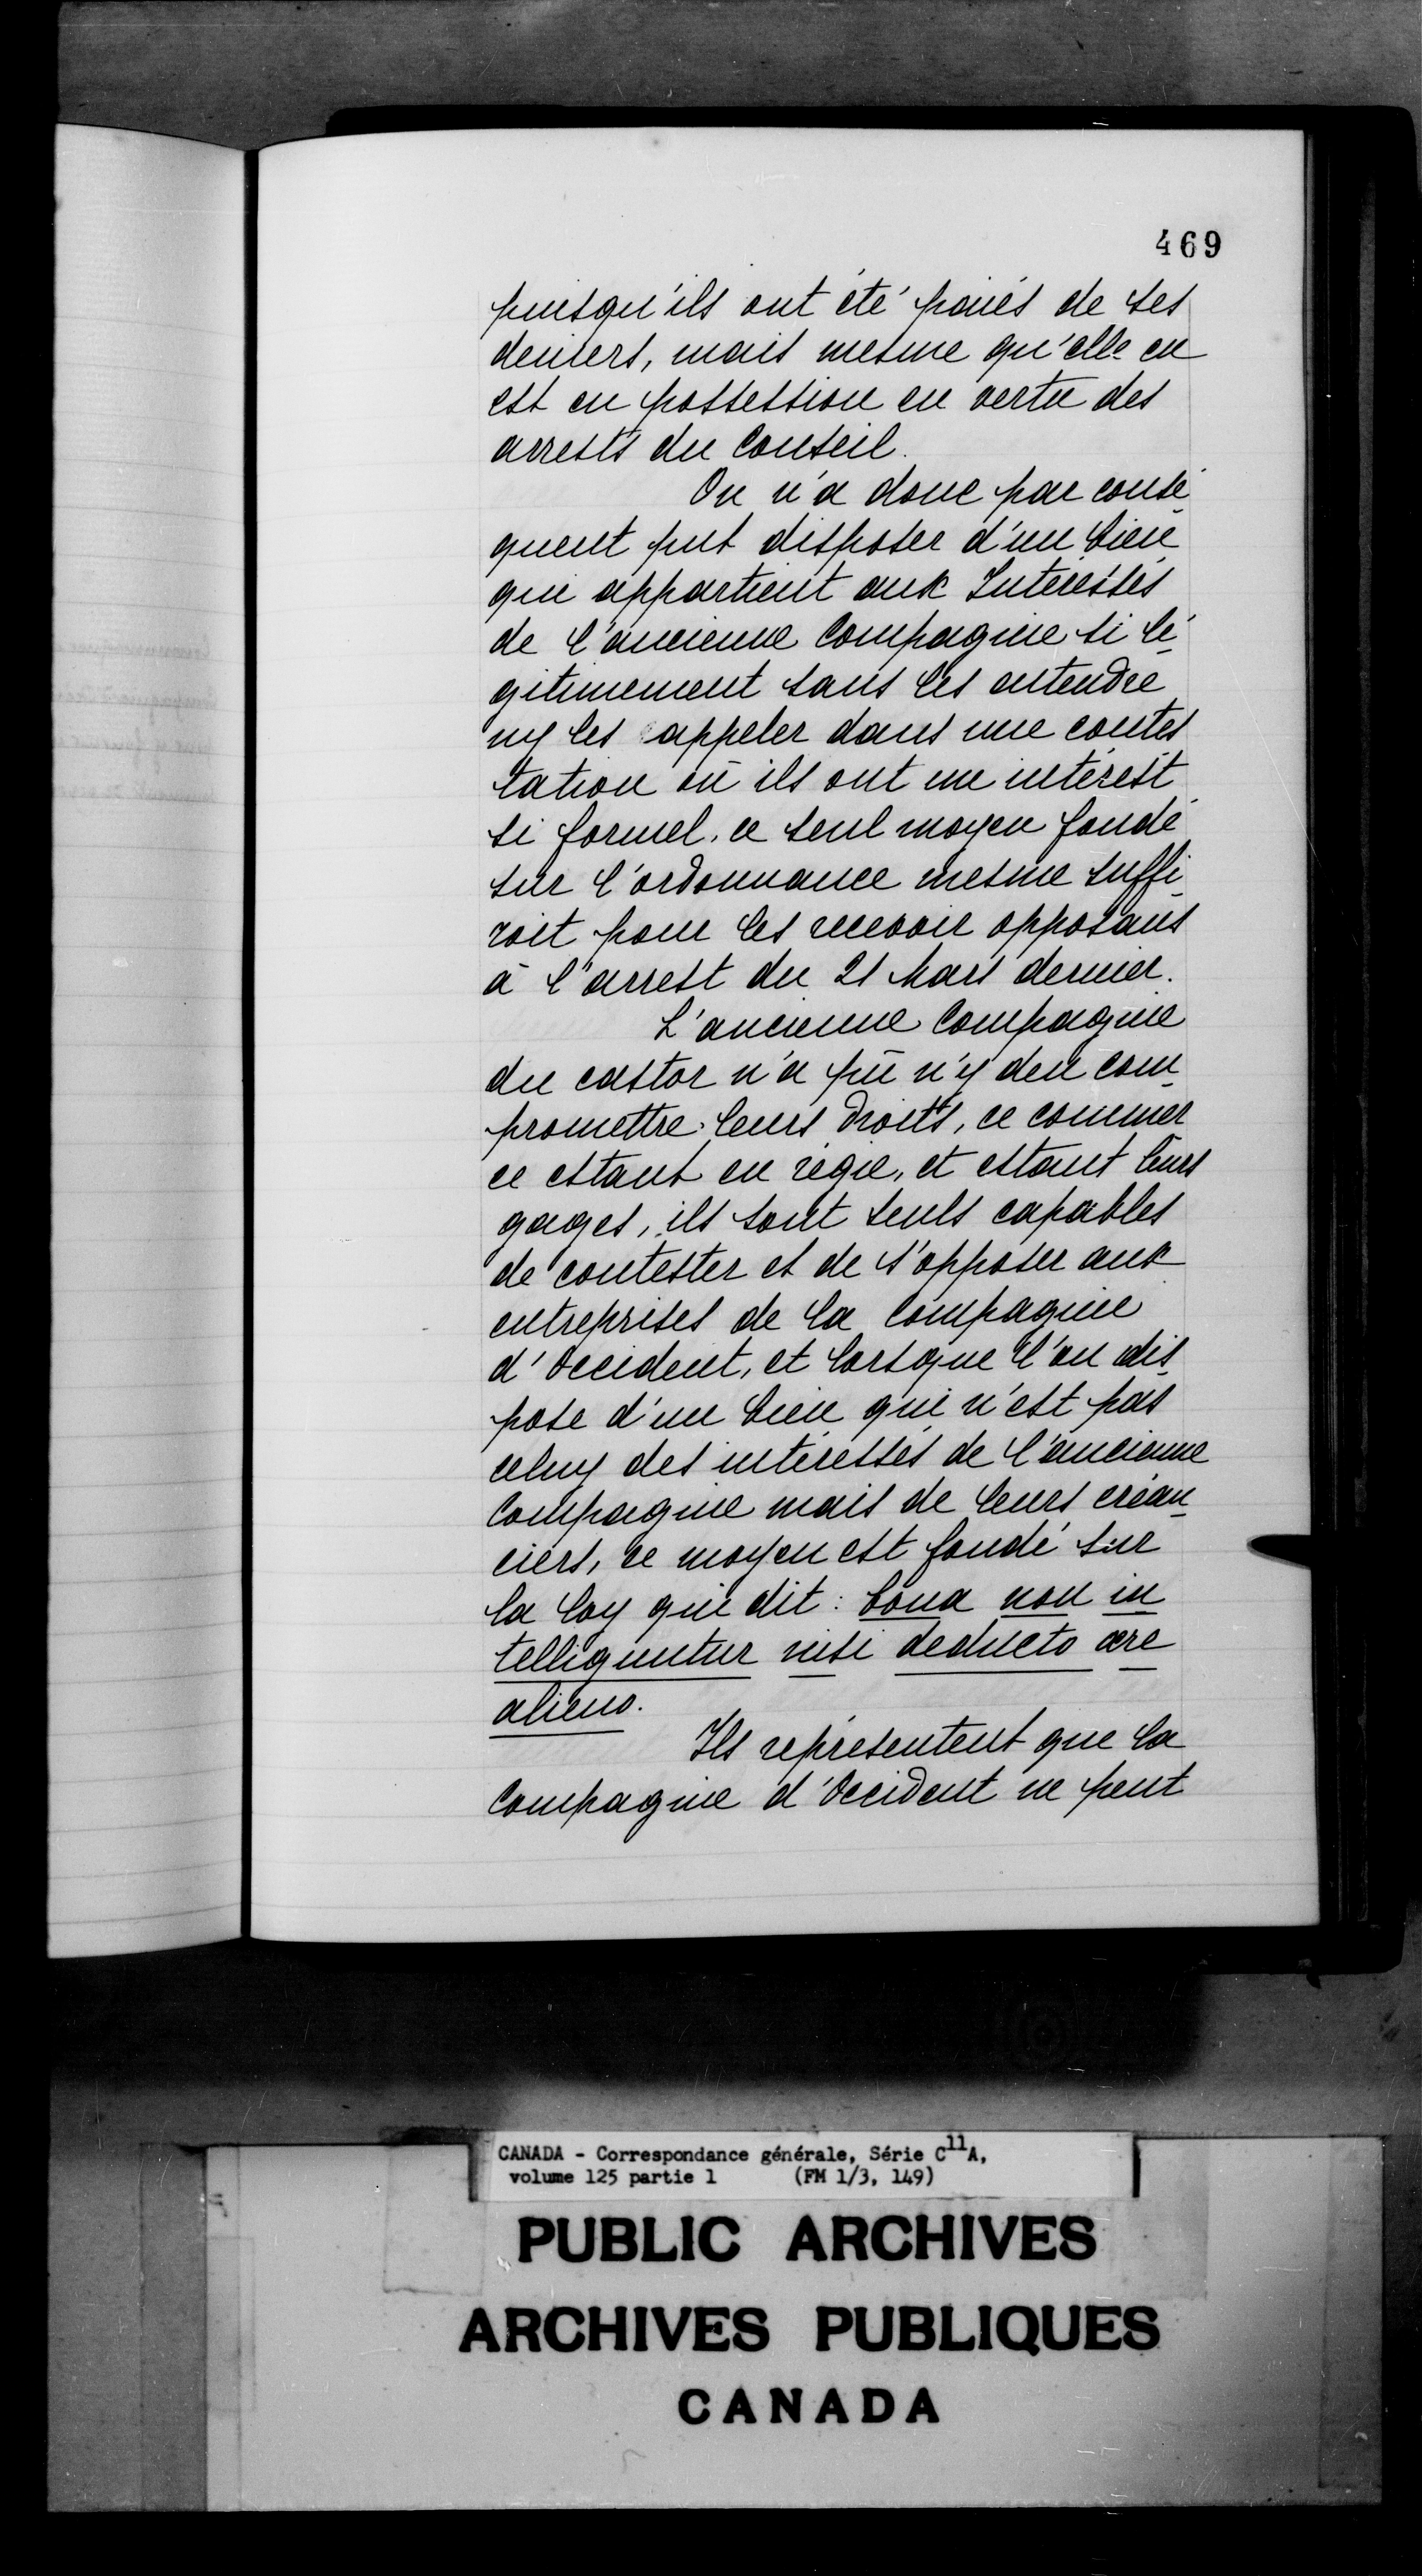 469
puisqu'ils ont été païés de ses
deniers, mais mesme qu'elle en
est en possession en vertu des
arrests du Conseil.
On n'a donc par consé-
quent put disposer d'un bien
qui appartient aux Intéréssés
de l'ancienne Compagnie si lé-
gitimement sans les entendre
ny les appeler dans une contes
tation où ils ont un intérest
si formel, ce seul moyen fondé
sur l'ordonnance mesme suffi-
roit pour les recevoir opposans
à l'arrest du 21 Mars dernier.
L'ancienne Compagnie
du castor n'a pû n'y deu com-
promettre leurs droits, ce commer
ce estant en régie, et estant leurs
gages, ils sont seuls capables
de contester et de s'opposer aux
entreprises de la Compagnie
d'Occident, et lorsque l'on dis-
pose d'un bien qui n'est pas
celuy des intéressés de l'ancienne
Compagnie mais de leurs créan-
ciers, ce moyen est fondé sur
la loy qui dit : bona non in
telliguntur nisi deducto œre
alieno.
Ils représentent que la
Compagnie d'Occident ne peut
CANADA - Correspondance générale, Série C11A,
volume 125 partie 1 (FM 1/3, 149)
PUBLIC ARCHIVES
ARCHIVES PUBLIQUES
CANADA